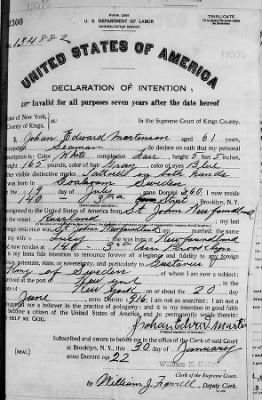 FORM 2203
U. S. DEPARTMENT OF LABOR
NATURALIZATION SERVICE
TRIPLICATE
No. 134882
UNITED STATES OF AMERICA
DECLARATION OF INTENTION
Invalid for all purposes seven years after the date hereof
State of New York,
County of Kings,
In the Supreme Court of Kings County.
I, Johan Edward Martenson aged 61 years,
occupation Seaman do declare on oath that my personal
description is: Color White complexion height 5 feet 5 inches,
weight 162 pounds, color of hair Gray color of eyes Blue
other visible distinctive marks Tattooed on both hands
born in Sweden
on the 19 day of July anno Domini 1860 I now reside
at 140 Brooklyn
emigrated to the United States of America from St John Newfoundland
on the vessel my last
foreign residence was St John Newfoundland
wife she was born at Newfoundland
and now resides at 140 - 3rd Brooklyn
It is my bona fide intention to renounce forever all allegiance and fidelity to any foreign
prince, potentate, state, or sovereignty, and particularly to Gustavus V
King of Sweden of whom I am now a subject;
I arrived at the port of New York
State of New York on or about the 20 day
of June anno Domini 1916; I am not an anarchist; I am not a
polygamist nor a believer in the practice of polygamy; and it is my intention in good faith
to become a citizen of the United States of America and to permanently reside therein:
SO HELP ME GOD.
Subscribed and sworn to before me in the office of the Clerk of said Court
at Brooklyn, N.Y., this 30 day of January
anno Domini 1922
[SEAL]
Clerk of the Supreme Court.
By William J. Deputy Clerk.